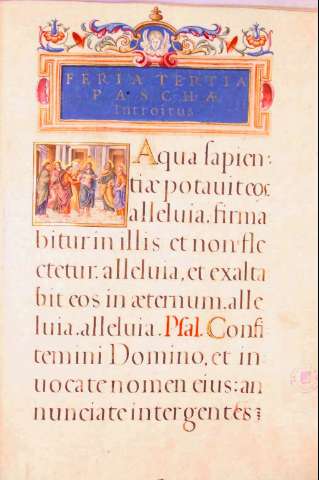 FERIA TERTIA
PASCHÆ
Introitus
Aqua sapien-
tiæ potauit eos
alleluia. firma
bitur in illis et non fle
ctetur. alleluia, et exalta
bit eos in æternum. alle
luia. alleluia. Psal. Confi
temini Domino, et in
uocate nomen eius: an
nunciate inter gentes